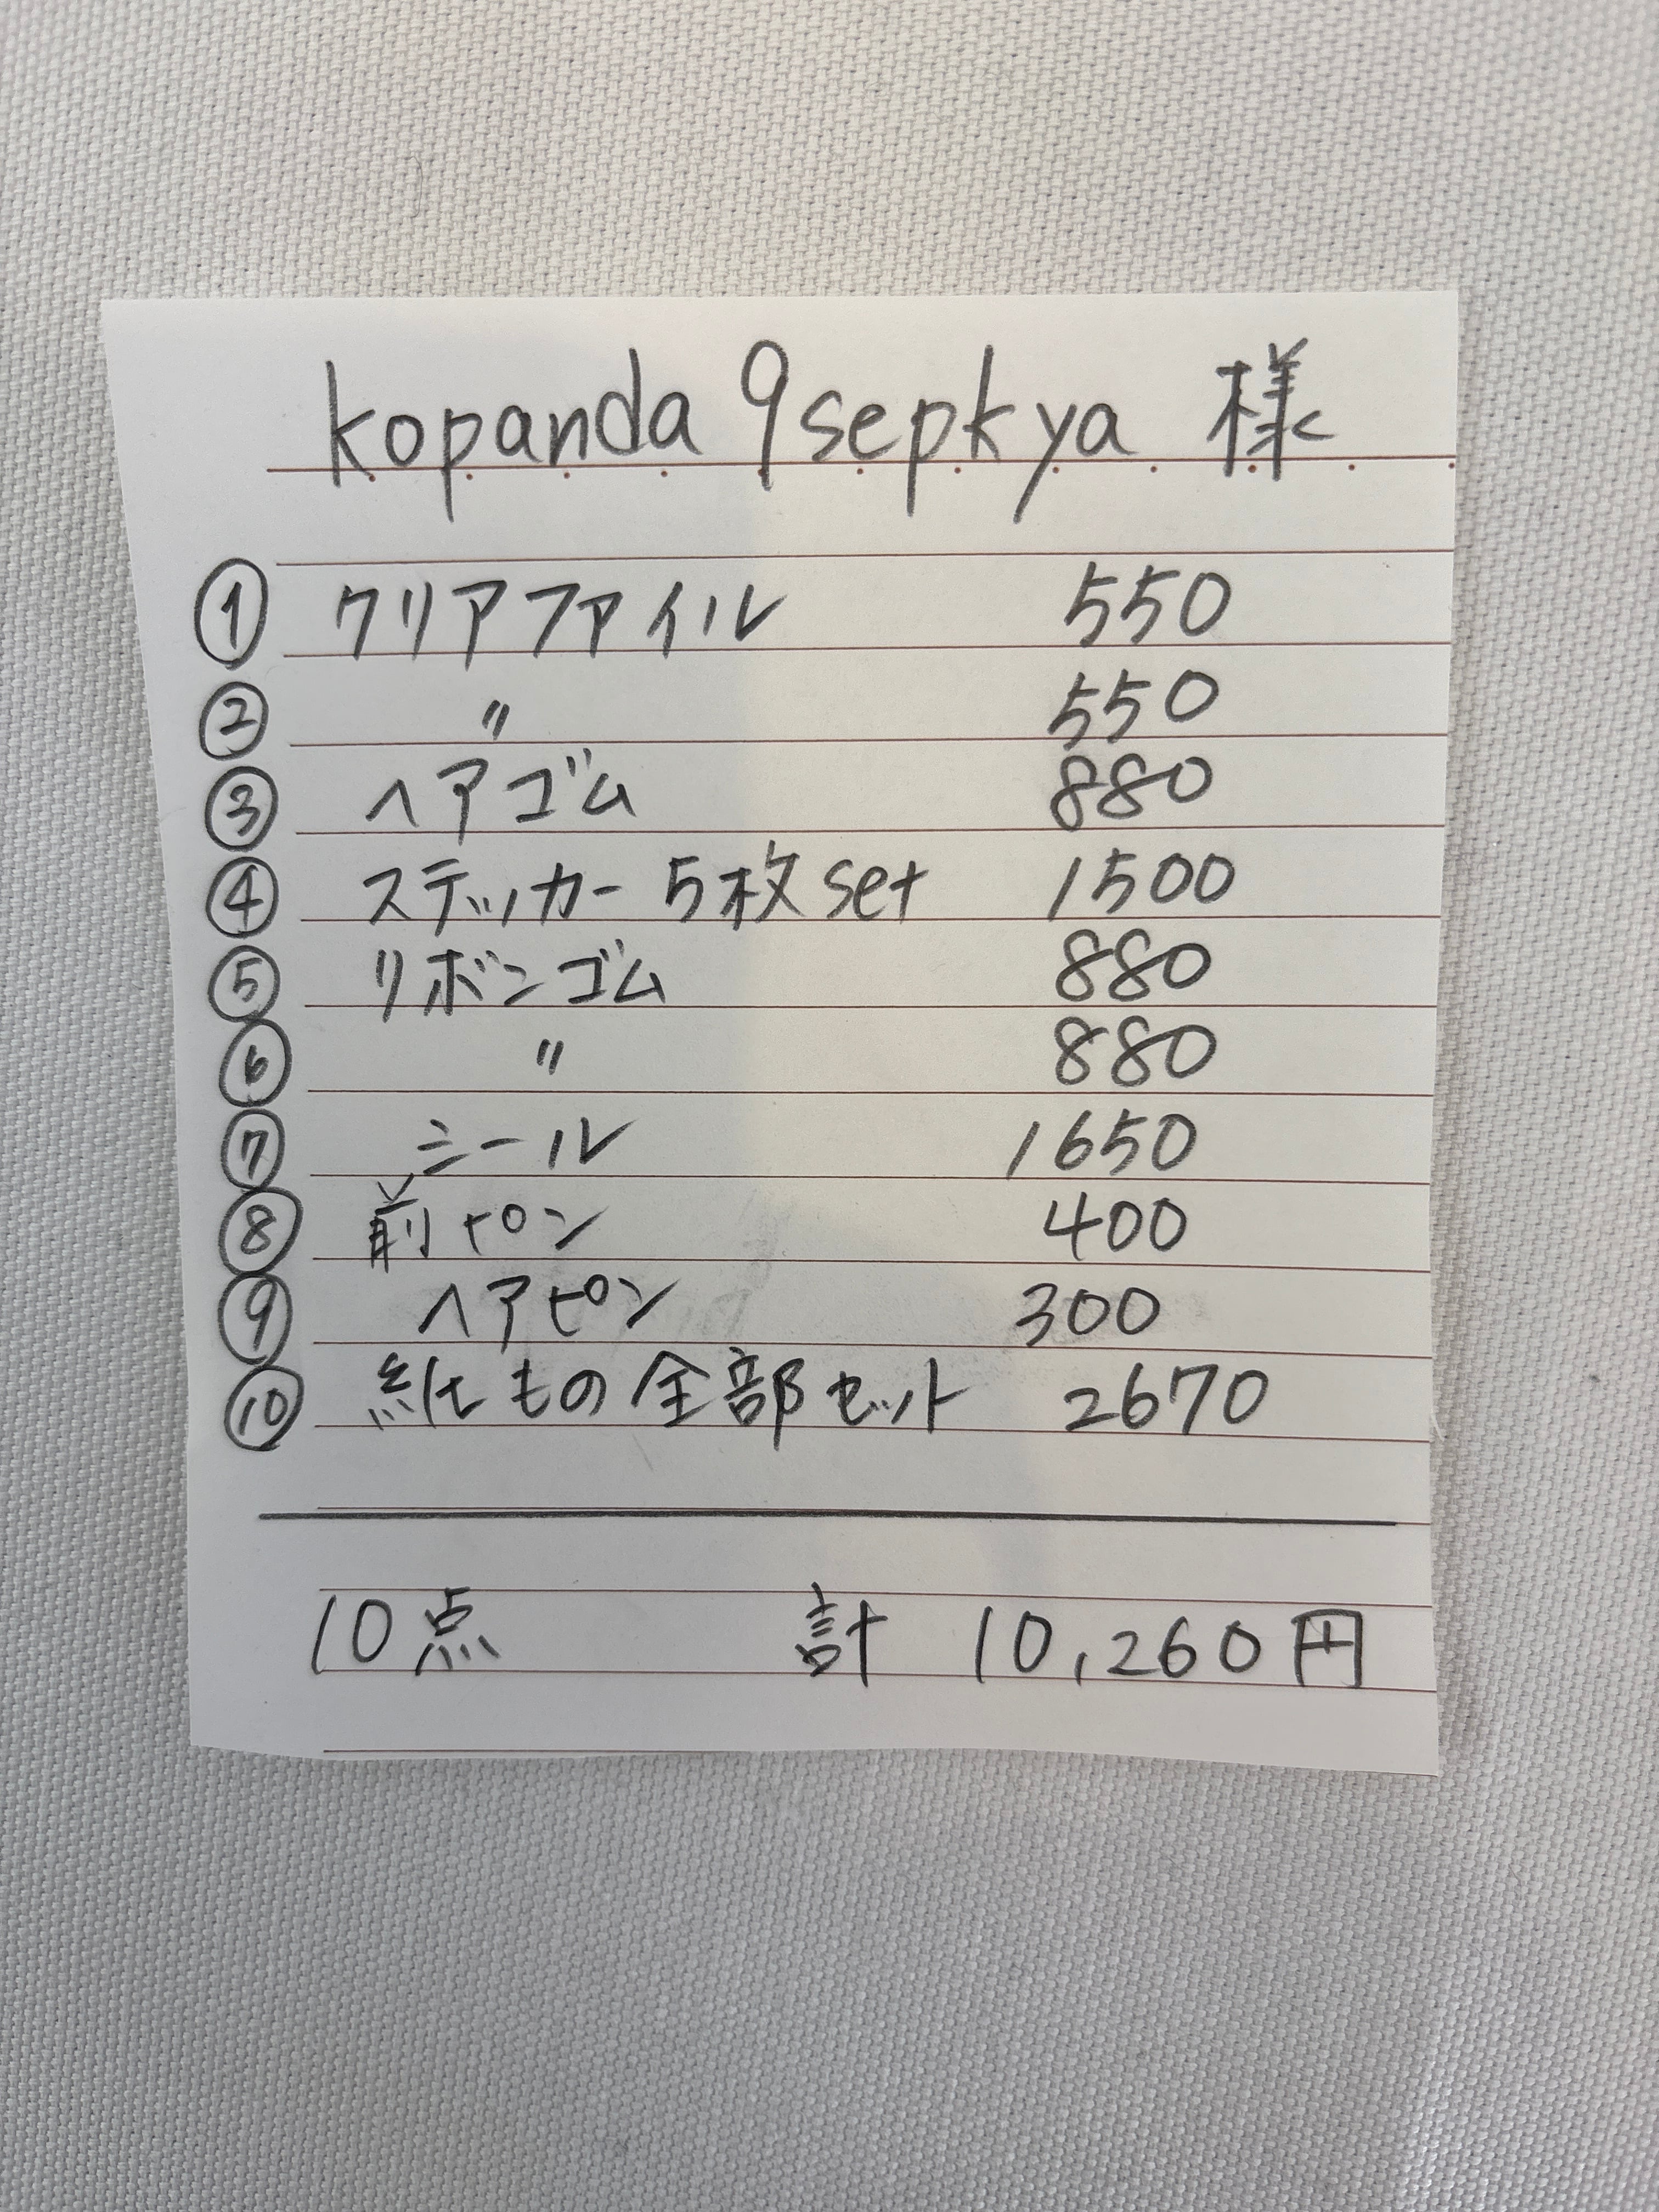 kopanda 9sepkya 様
① クリアファイル 550
② 〃 550
③ ヘアゴム 880
④ ステッカー 5枚set 1500
⑤ リボンゴム 880
⑥ 〃 880
⑦ シール 1650
⑧ 前ピン 400
⑨ ヘアピン 300
⑩ 紙もの全部セット 2670
10点 計 10,260円